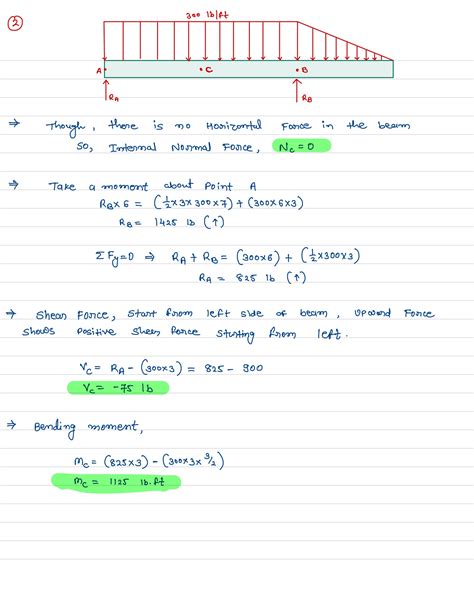 2
300 lb/ft
A • C • B
RA RB
⇒ Though, there is no Horizontal Force in the beam
So, Internal Normal Force, Nc = 0
⇒ Take a moment about Point A
RB×6 = (1/2×3×300×7) + (300×6×3)
RB = 1425 lb (↑)
ΣFy=0 ⇒ RA + RB = (300×6) + (1/2×300×3)
RA = 825 lb (↑)
⇒ Shear Force, Start from left side of beam, Upward Force
shows Positive Shear force starting from left.
Vc = RA - (300×3) = 825 - 900
Vc = -75 lb
⇒ Bending moment,
Mc = (825×3) - (300×3×3/2)
Mc = 1125 lb.ft